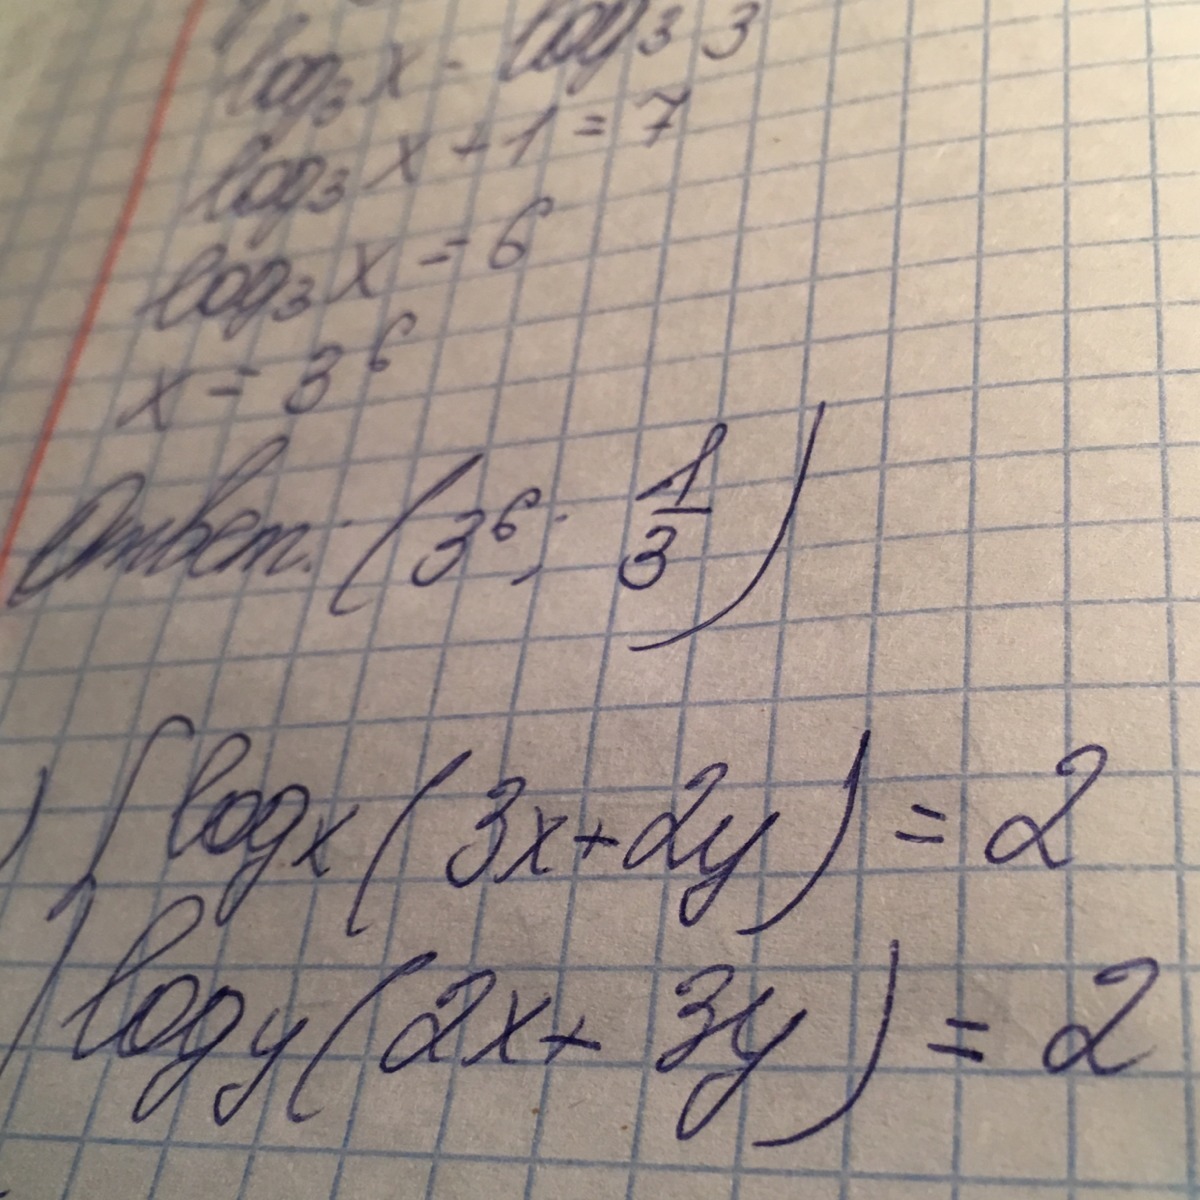 log₃ x - log₃ 3
log₃ x + 1 = 7
log₃ x = 6
x = 3⁶
Ответ: (3⁶; 1/3)
) { log_x (3x + 2y) = 2
log_y (2x + 3y) = 2